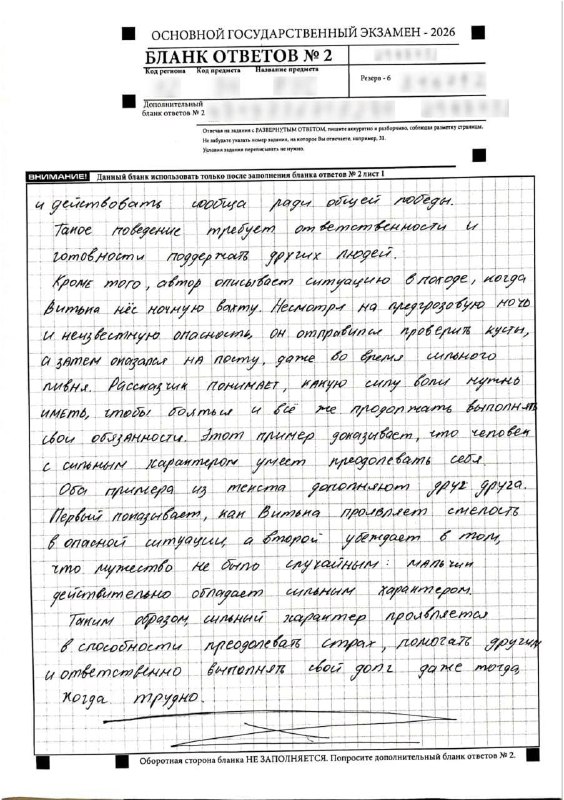 ОСНОВНОЙ ГОСУДАРСТВЕННЫЙ ЭКЗАМЕН - 2026
БЛАНК ОТВЕТОВ № 2
Код региона Код предмета Название предмета
Резерв - 6
Дополнительный
бланк ответов № 2
Отвечая на задания с РАЗВЕРНУТЫМ ОТВЕТОМ, пишите аккуратно и разборчиво, соблюдая разметку страницы.
Не забудьте указать номер задания, на которое Вы отвечаете, например, 31.
Условия задания переписывать не нужно.
ВНИМАНИЕ! Данный бланк использовать только после заполнения бланка ответов № 2 лист 1
и действовать сообща ради общей победы.
Такое поведение требует ответственности и
готовности поддержать других людей.
Кроме того, автор описывает ситуацию в походе, когда
Витька нёс ночную вахту. Несмотря на предгрозовую ночь
и неизвестную опасность, он отправился проверить кусты,
а затем оказался на посту, даже во время сильного
ливня. Рассказчик понимает, какую силу воли нужно
иметь, чтобы бояться и всё же продолжать выполнять
свои обязанности. Этот пример доказывает, что человек
с сильным характером умеет преодолевать себя.
Оба примера из текста дополняют друг друга.
Первый показывает, как Витька проявляет смелость
в опасной ситуации, а второй убеждает в том,
что мужество не было случайным: мальчик
действительно обладает сильным характером.
Таким образом, сильный характер проявляется
в способности преодолевать страх, помогать другим
и ответственно выполнять свой долг даже тогда,
когда трудно.
Оборотная сторона бланка НЕ ЗАПОЛНЯЕТСЯ. Попросите дополнительный бланк ответов № 2.